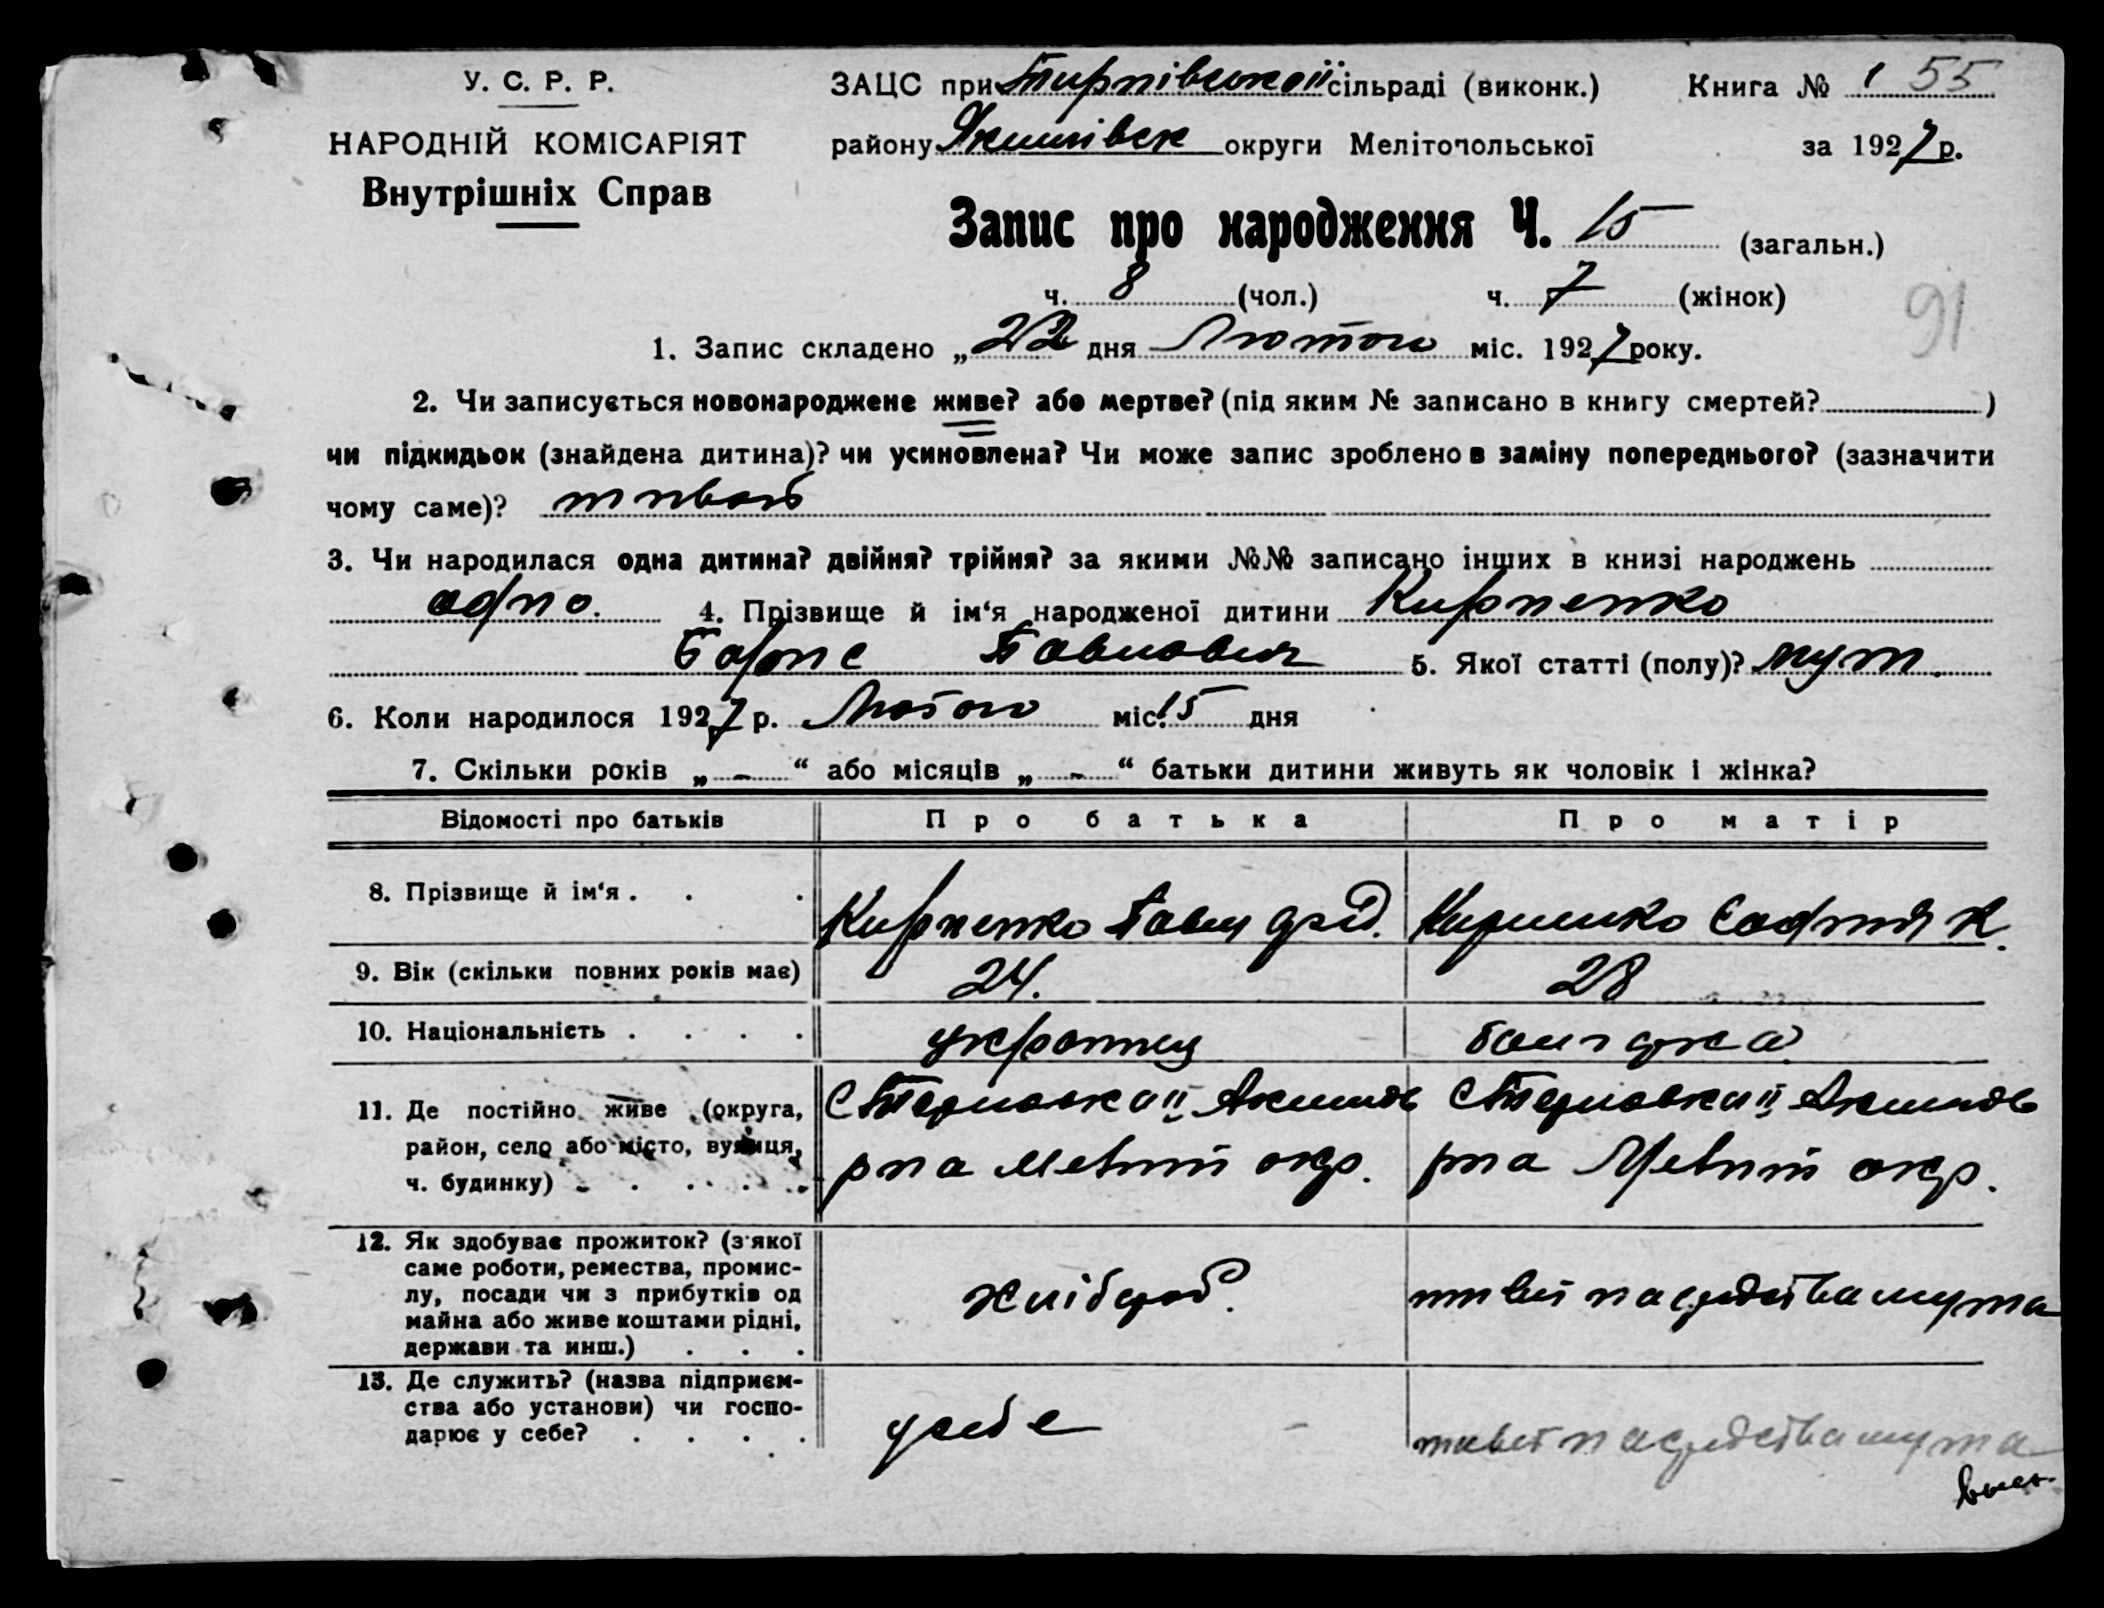 У. С. Р. Р.
НАРОДНІЙ КОМІСАРІЯТ
Внутрішніх Справ
ЗАЦС при Тирнівської сільраді (виконк.)
району Якимівск округи Мелітопольської
Книга № 1 55
за 1927 р.
Запис про народження Ч. 15 (загальн.)
ч. 8 (чол.) ч. 7 (жінок)
91
1. Запис складено „22 дня Лютого міс. 1927 року.
2. Чи записується новонароджене живе? або мертве? (під яким № записано в книгу смертей? )
чи підкидьок (знайдена дитина)? чи усиновлена? Чи може запис зроблено в заміну попереднього? (зазначити
чому саме)?
3. Чи народилася одна дитина? двійня? трійня? за якими №№ записано інших в книзі народжень
одно. 4. Прізвище й ім‘я народженої дитини Кирпенко
Борис Павлович 5. Якої статті (полу)? муж.
6. Коли народилося 1927 р. Лютого міс. 15 дня
7. Скільки років „ - “ або місяців „ - “ батьки дитини живуть як чоловік і жінка?
Відомості про батьків Про батька Про матір
8. Прізвище й ім‘я . . . Кирпенко Павел Кирпенко Софния К.
9. Вік (скільки повних років має) 24. 28
10. Національність . . . . украинец болгарка
11. Де постійно живе (округа,
район, село або місто, вулиця,
ч. будинку) . . . . .
с Терновка II Акимов
рна Мелит окр.
с Терновка II Акимов
рна Мелит окр.
12. Як здобуває прожиток? (з якої
саме роботи, ремества, промис-
лу, посади чи з прибутків од
майна або живе коштами рідні,
держави та инш.) . . .
хлібороб.
живет на средства мужа
13. Де служить? (назва підприєм-
ства або установи) чи госпо-
дарює у себе? . . . .
у себе
живет на средства мужа